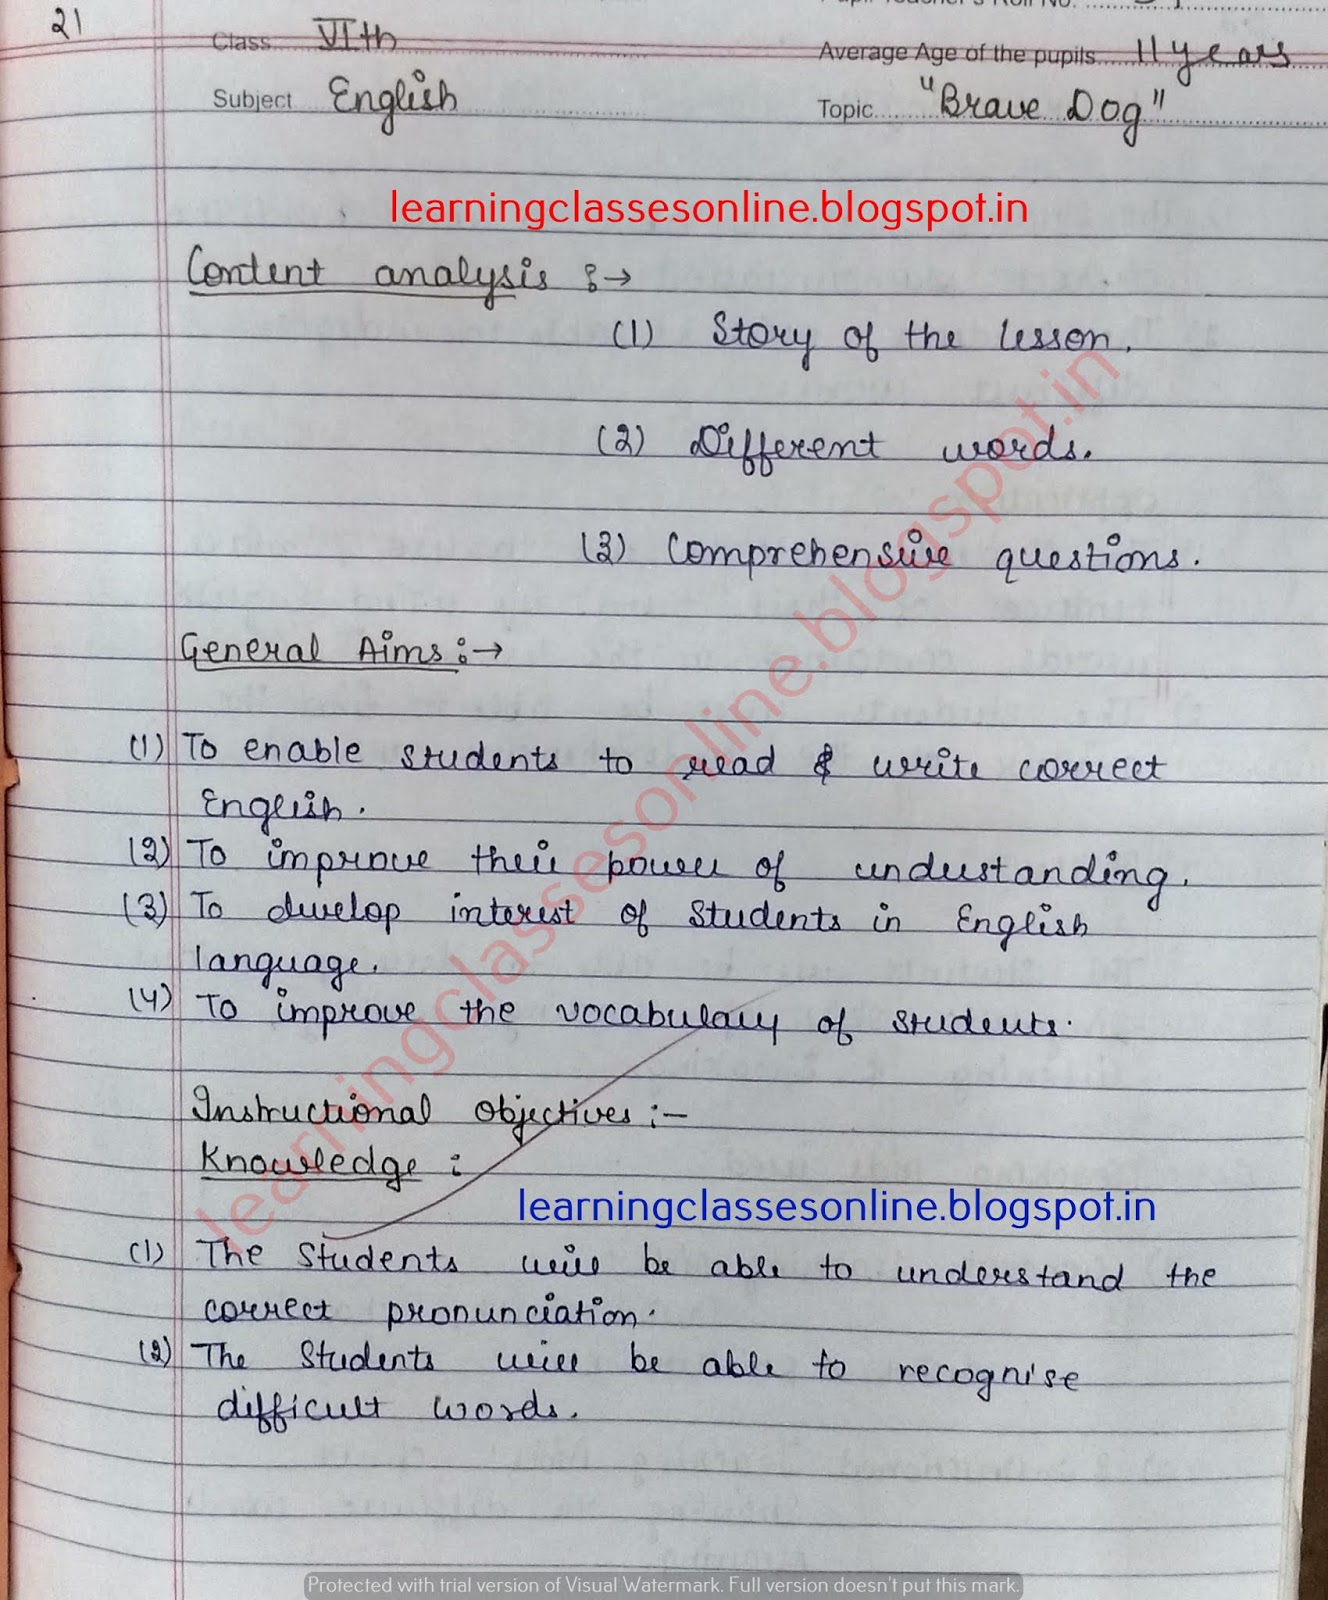 21
Class VIth
Average Age of the pupils 11 years
Subject English
Topic "Brave Dog"
learningclassesonline.blogspot.in
Content analysis :→
(1) Story of the lesson.
(2) Different words.
(3) Comprehensive questions.
General Aims :→
(1) To enable students to read & write correct
English.
(2) To improve their power of understanding.
(3) To develop interest of students in English
language.
(4) To improve the vocabulary of students.
Instructional Objectives :-
Knowledge :
learningclassesonline.blogspot.in
(1) The students will be able to understand the
correct pronunciation.
(2) The students will be able to recognise
difficult words.
learningclassesonline.blogspot.in
Protected with trial version of Visual Watermark. Full version doesn't put this mark.